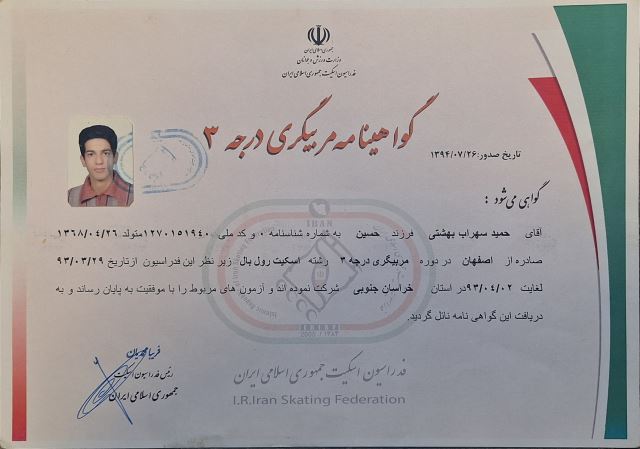 جمهوری اسلامی ایران
وزارت ورزش و جوانان
فدراسیون اسکیت جمهوری اسلامی ایران
گواهینامه مربیگری درجه ۳
تاریخ صدور:۱۳۹۴/۰۷/۲۶
گواهی می‌شود :
آقای حمید سهراب بهشتی فرزند حسین به شماره شناسنامه ۰ و کد ملی ۱۲۷۰۱۵۱۹۴۰متولد ۱۳۶۸/۰۴/۲۶
صادره از اصفهان در دوره مربیگری درجه ۳ رشته اسکیت رول بال زیر نظر این فدراسیون ازتاریخ ۹۳/۰۳/۲۹
لغایت ۹۳/۰۴/۰۲در استان خراسان جنوبی شرکت نموده اند و آزمون های مربوط را با موفقیت به پایان رساند و به
دریافت این گواهی نامه نائل گردید.
IRAN
2005 / ۱۳۸۴
رئیس فدراسیون اسکیت
جمهوری اسلامی ایران
فدراسیون اسکیت جمهوری اسلامی ایران
I.R.Iran Skating Federation